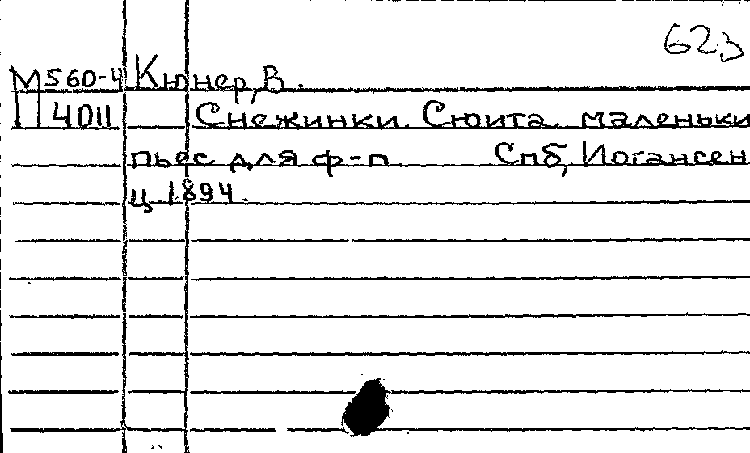 623
М560-4 Кюнер, В.
П 4011 Снежинки. Сюита маленьки
пьес для ф-п Спб, Иогансен
ц. 1894.